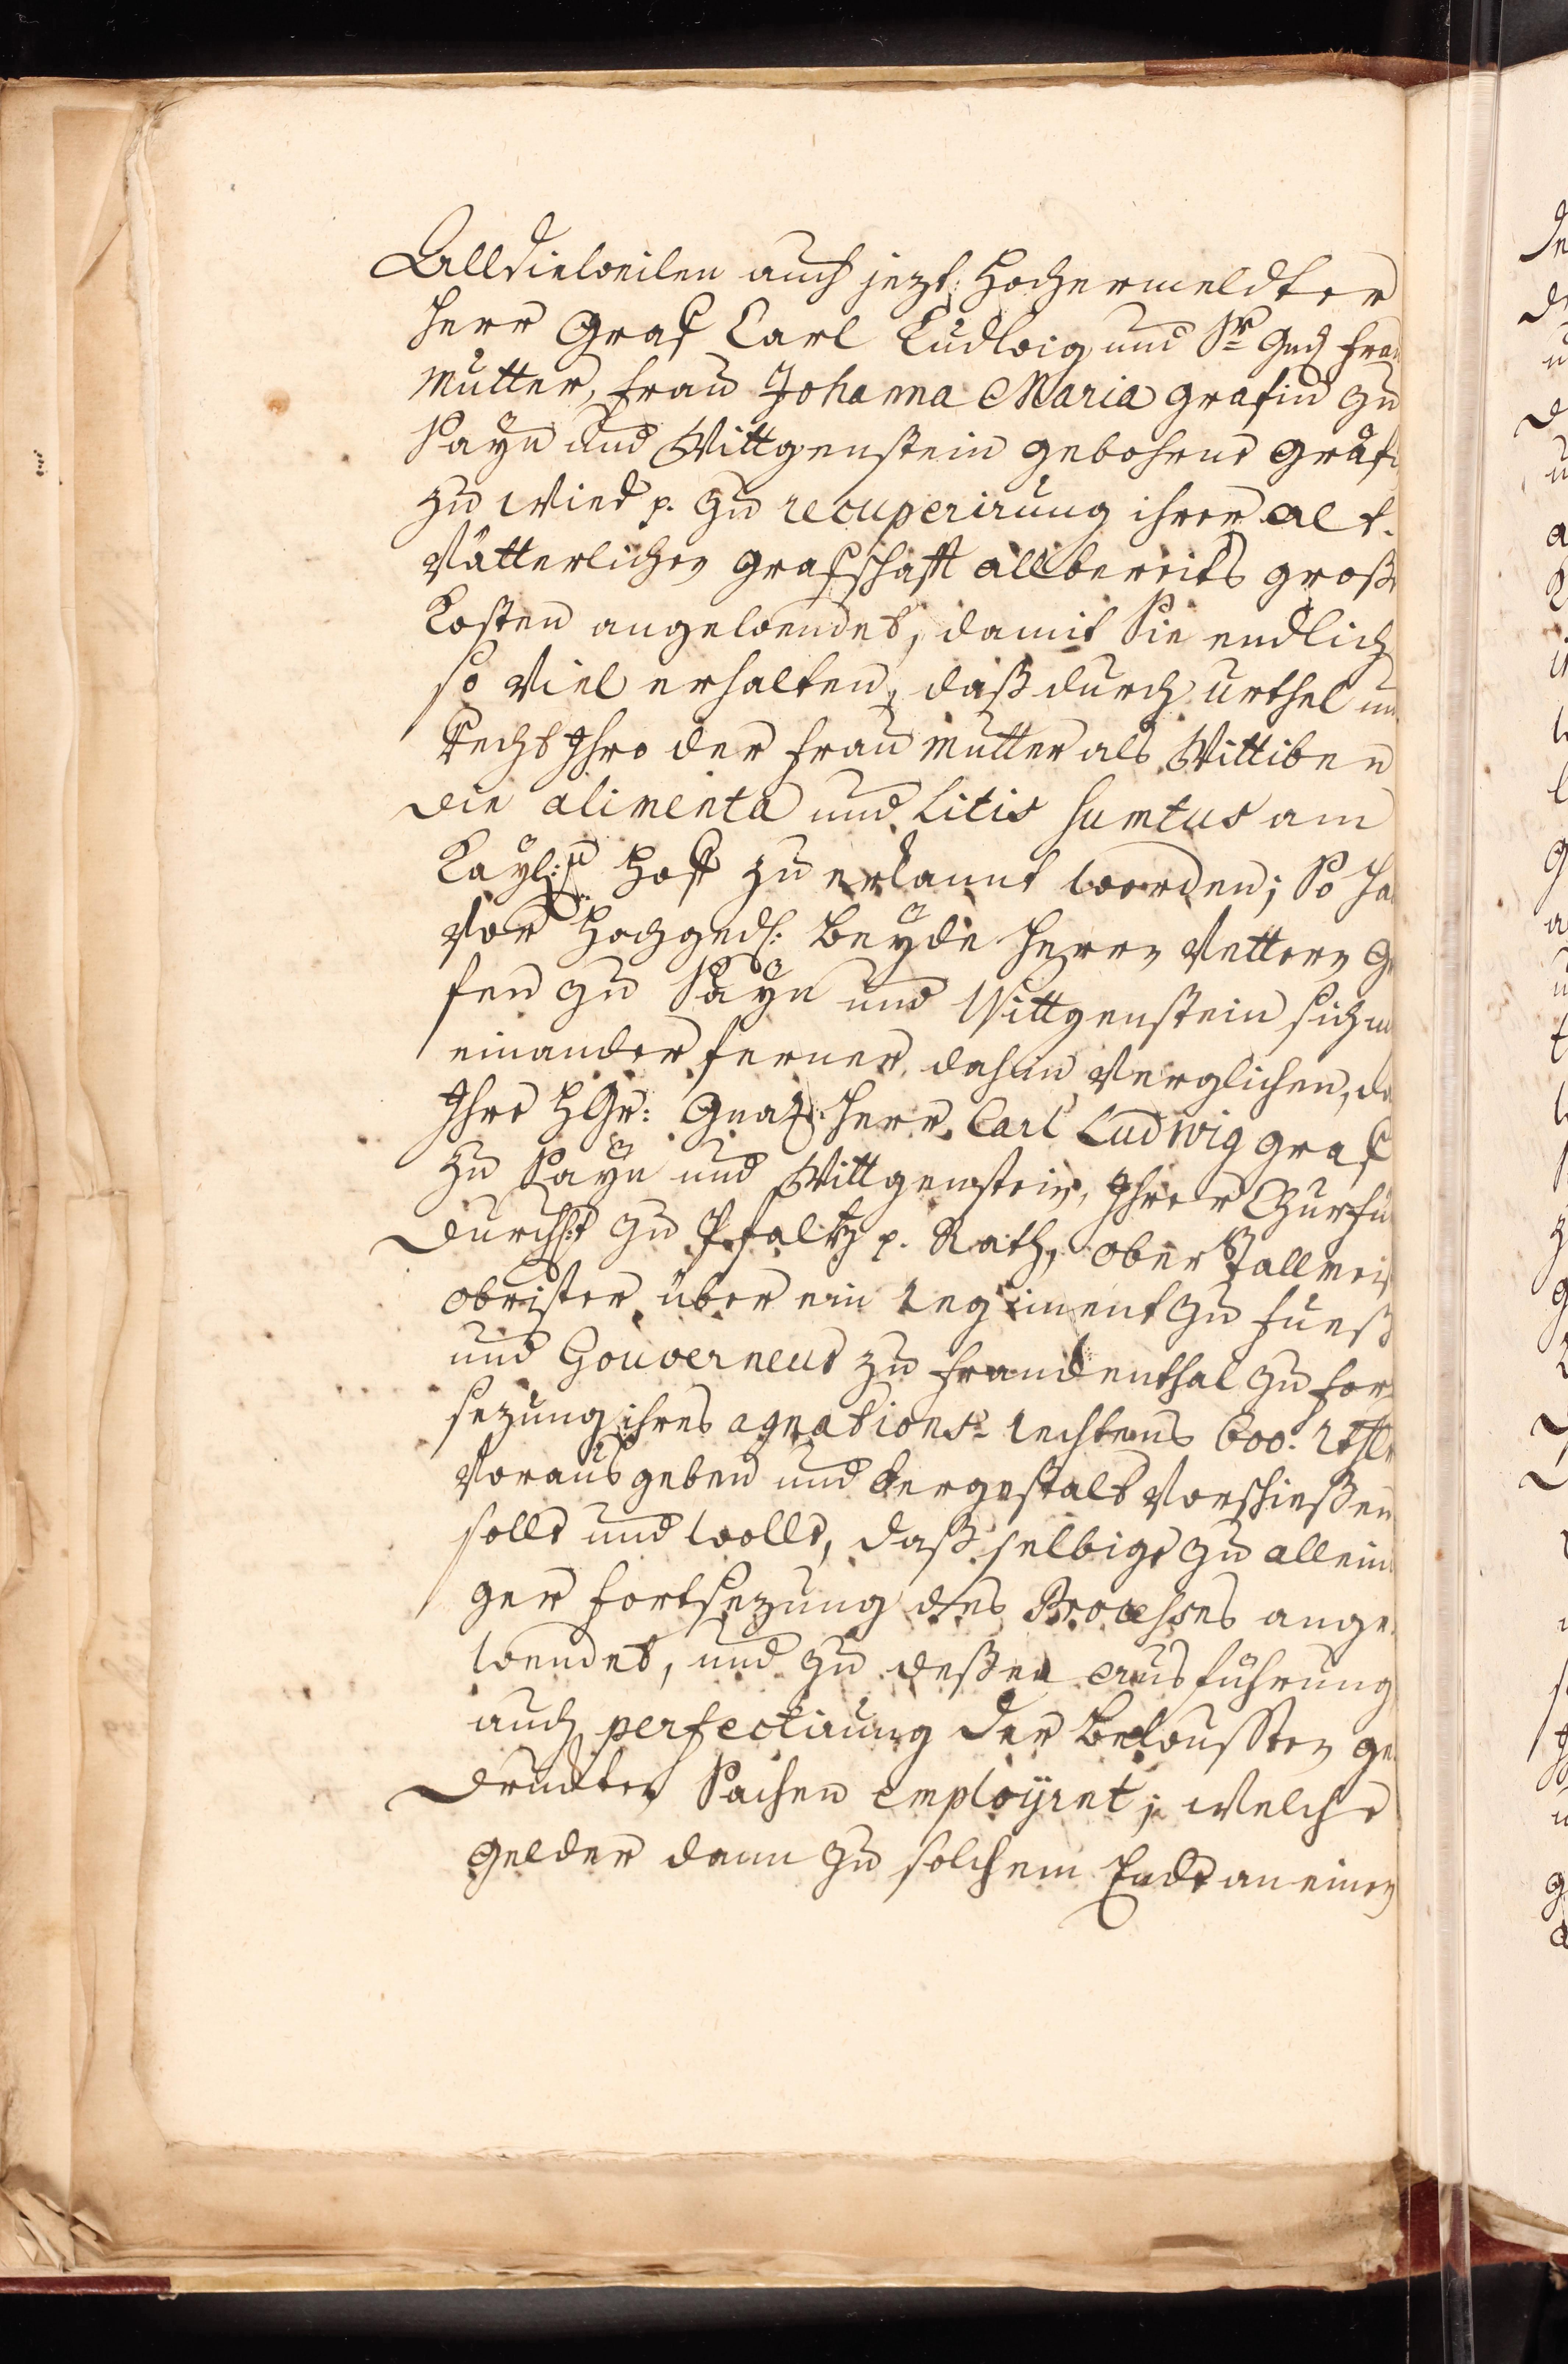 Alldieweilen auch jezt, Hochermeldter
Herr Graf Carl Ludwig und Sr Gnd Frau
Mutter, Frau Johanna Maria Gräfin zu
Sayn und Wittgenstein gebohrne Gräf
zu Wied p. zu recuperirung ihrer alt-
Vätterlichen Grafschafft allbereits große
Kosten angewendet, damit Sie endlich
so Viel erhalten, daß durch Urthel un
Recht Ihro der Frau Mutter als Wittiben
die alimenta und Litis sumtus am
Kayl:n Hoff zu erkannt worden; So ha
Vor Hochged: Beyde Herrn Vettern Gr
fen zu Sayn und Wittgenstein sich mi
einander ferner dahin Verglichen, da
Ihre HGr: Gnad Herr Carl Ludwig Graf
zu Sayn und Wittgenstein, Ihrer Churfü
Durchlt zu Pfaltz p. Rath, Ober Stallmeis
Obrister über ein Regiment zu Fueß
und Gouverneur zu Franckenthal zu for
sezung ihres agnations-Rechtens 600. Rthlr
Voraus geben und dergestalt Vorschießen
solle und wolle, daß selbige zu allein
ger Fortsezung des Processes ange-
wendet, und zu deßen Ausführung
auch perfectirung der Bewußten ge
druckten Sachen employret; Welche
Gelder dann zu solchem Ende an einen